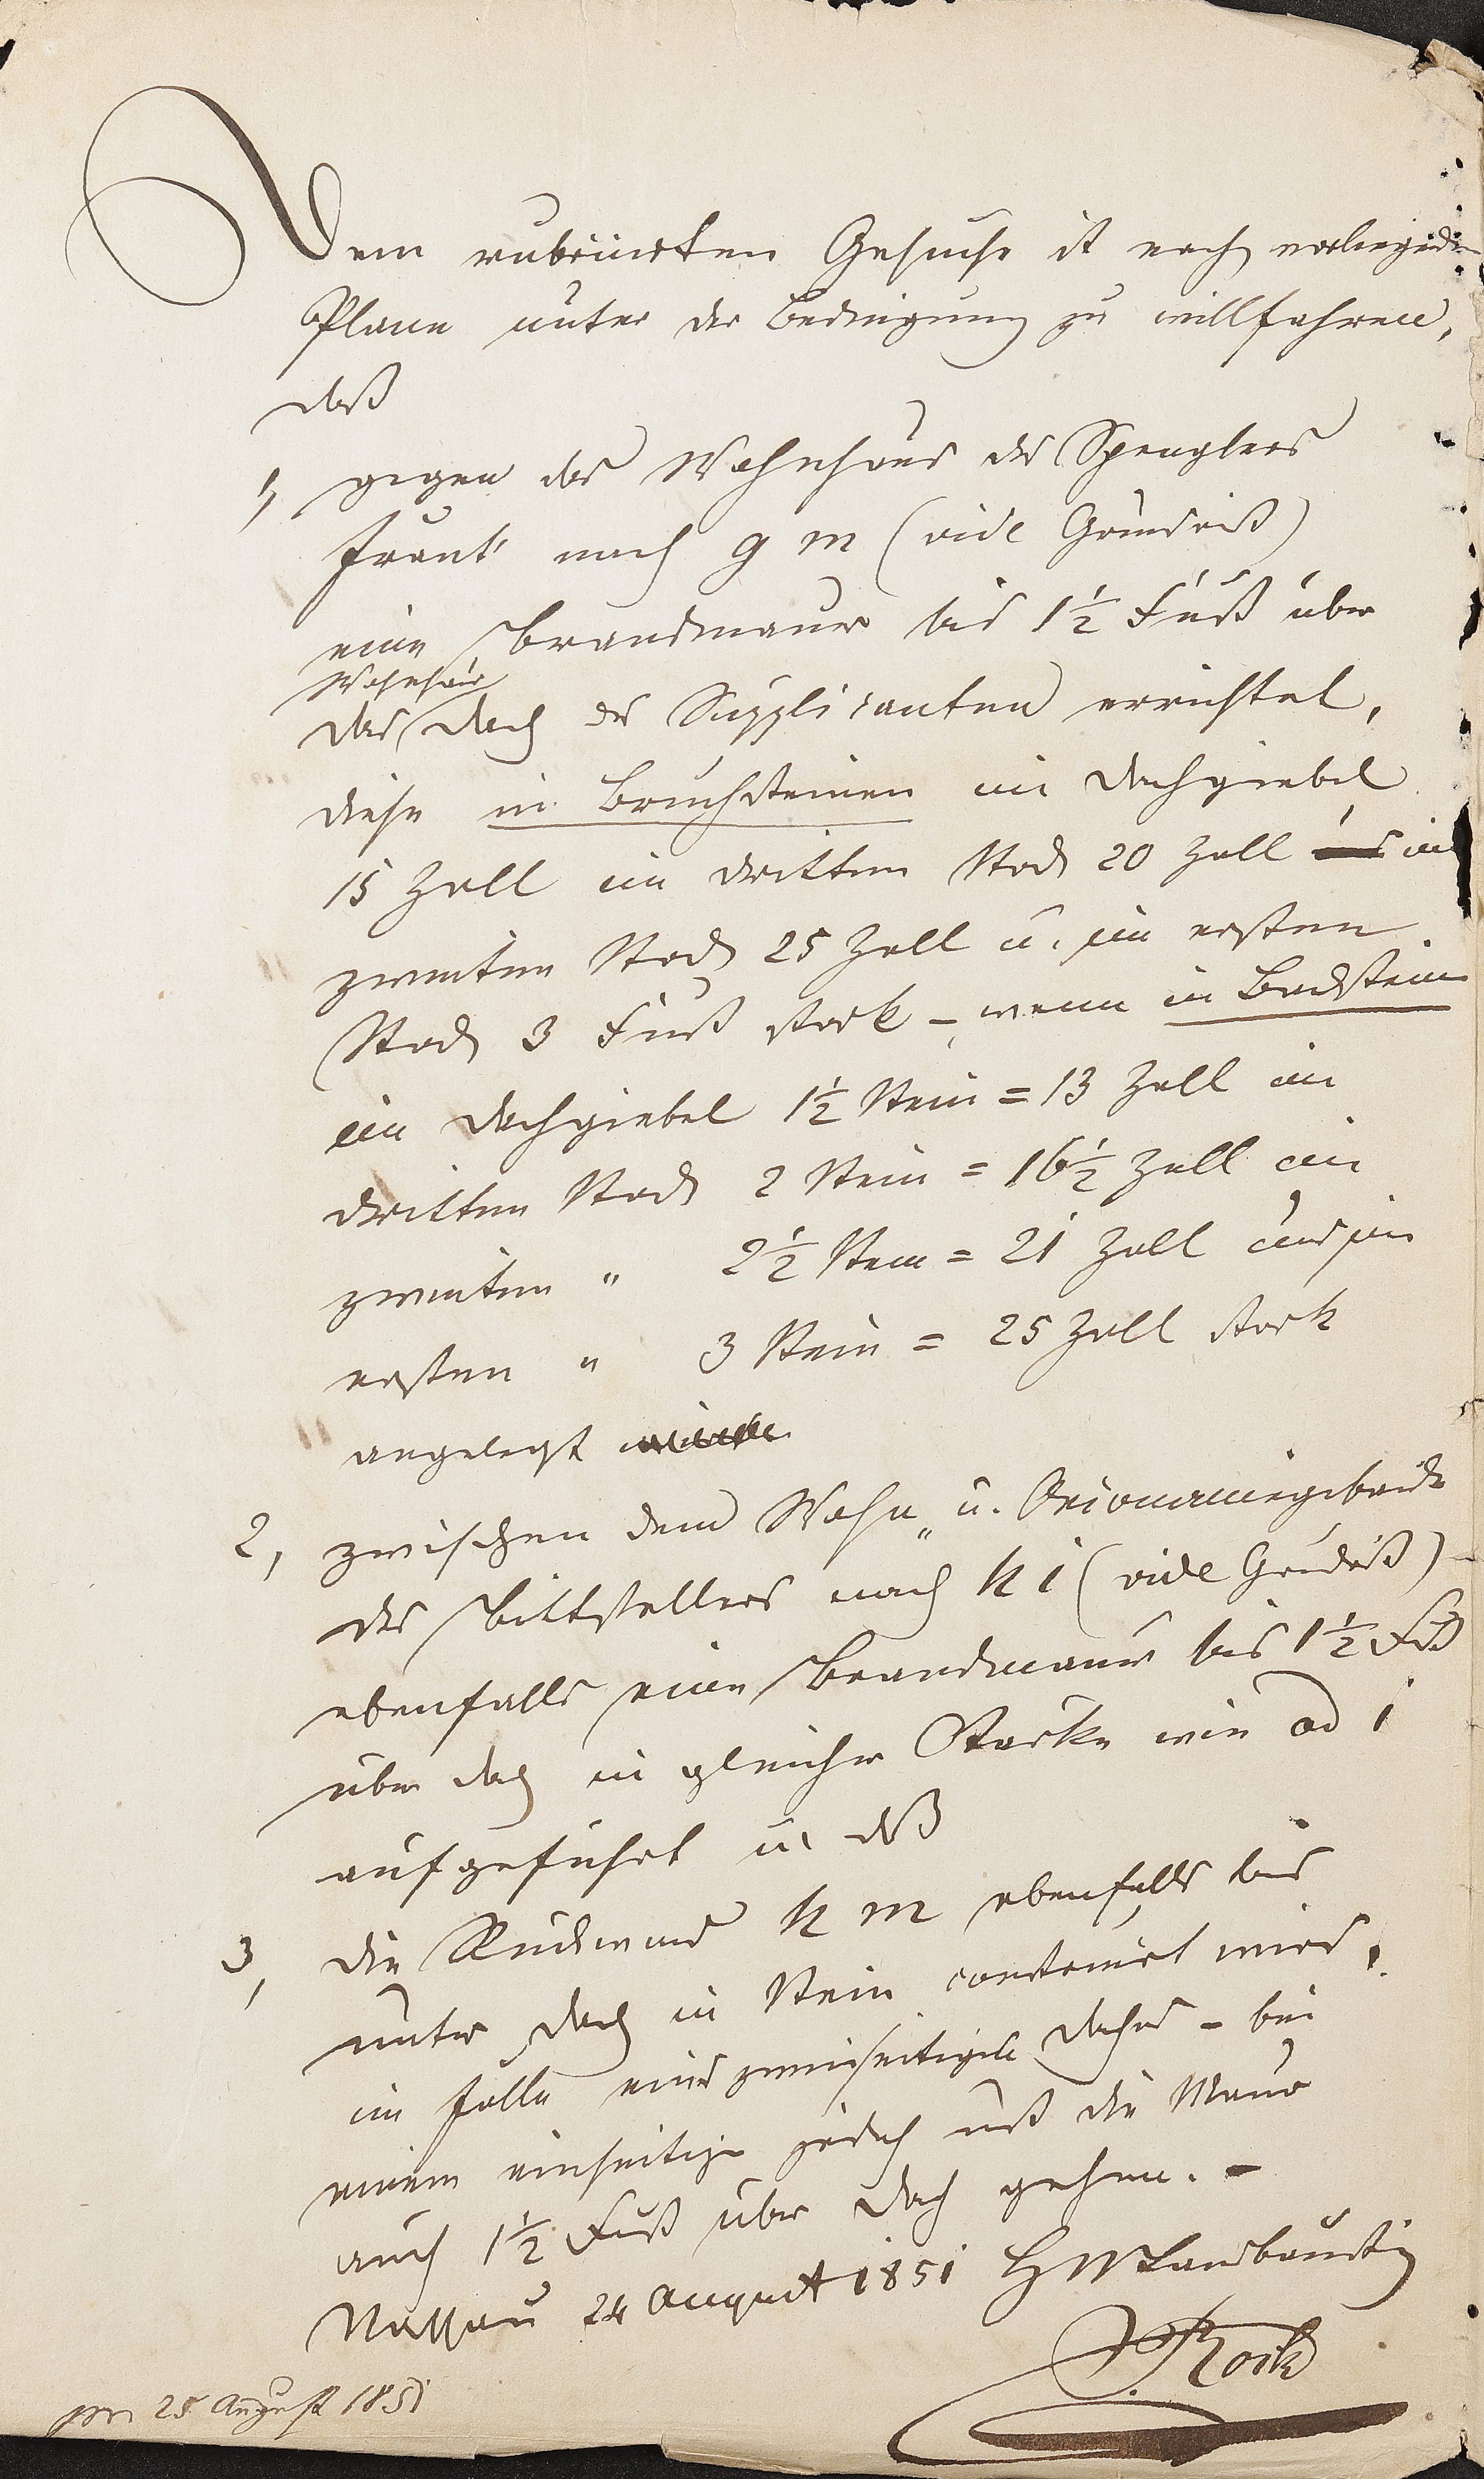 Dem rubricirten Gesuche ist nach vorliegendem
Plane unter der Bedingung zu willfahren,
daß
1, gegen das Wohnhaus des Spenglers
nach g m (vide Grundriß)
eine Brandmauer bis 1½ Fuß über
Wohnhaus
das Dach des Supplicanten errichtet,
diese in Bruchsteinen im Dachgiebel
15 Zoll im dritten Stock 20 Zoll im
zweiten Stock 25 Zoll u. im ersten
Stock 3 Fuß stark – wenn in Backstein
im Dachgiebel 1½ Stein = 13 Zoll im
dritten Stock 2 Stein = 16½ Zoll im
zweiten " 2½ Stein = 21 Zoll und im
ersten " 3 Stein = 25 Zoll stark
angelegt
2, zwischen dem Wohn- u. Oeconomiegebäude
des Bittstellers nach k i (vide Grundriß)
ebenfalls eine Brandmauer bis 1½ Fuß
über Dach in gleicher Stärke wie ad 1
aufgeführt u. daß
3, die Rückwand k m ebenfalls bis
unter Dach in Stein construirt wird,
im Falle eines zweiseitigen Daches – bei
einem einseitigen jedoch muß die Mauer
auch 1½ Fuß über Dach gehen. –
Nassau 24 August 1851
pr. 25 August 1851